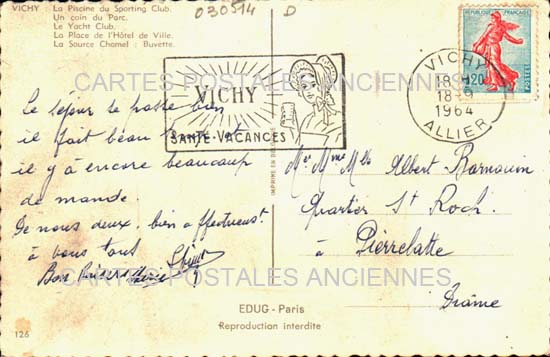 VICHY La Piscine du Sporting Club.
Un coin du Parc.
Le Yacht Club.
La Place de l'Hôtel de Ville.
La Source Chomel : Buvette.
030514 D
VICHY
SANTÉ-VACANCES
REPUBLIQUE FRANÇAISE
POSTES
VICHY
18H20
18-9
1964
ALLIER
CARTES POSTALES ANCIENNES
IMPRIMÉ EN
Le séjour se passe bien
il fait beau temps et
il y a encore beaucoup
de monde.
De nous deux, bien affectueust
à vous tous
Bons baisers
Mr Mme Mlle Albert Barnouin
Quartier St Roch
à Pierrelatte
Drôme
CARTES POSTALES ANCIENNES
EDUG - Paris
Reproduction interdite
126